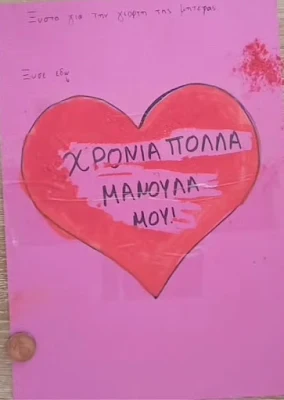 Ξυστο για την γιορτη της μητερας
Ξυσε εδω
ΧΡΟΝΙΑ ΠΟΛΛΑ
ΜΑΝΟΥΛΑ
ΜΟΥ!